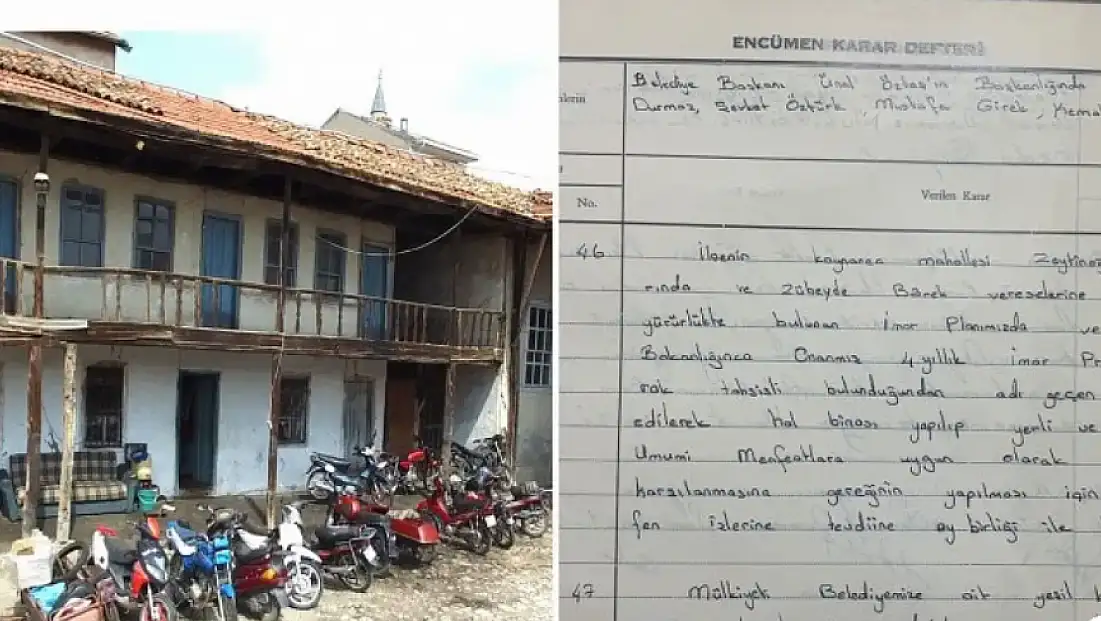 ENCÜMEN KARAR DEFTERİ
Belediye Başkanı Ünal Özbaş'ın Başkanlığında
Durmaz, Şevket Öztürk, Mustafa Girek, Kemal
No.
Verilen Karar
46
İlçenin kaynarca mahallesi
rında ve Zübeyde Barek vereselerine
yürürlükte bulunan İmar Planımızda ve
Bakanlığınca Onanmış 4 yıllık İmar Pr
rak tahsisli bulunduğundan adı geçen
edilerek hal binası yapılıp yerli ve
Umumi Menfeatlara uygun olarak
karşılanmasına gereğinin yapılması için
fen izlerine tevdiine oy birliği ile
47
Mülkiyeti Belediyemize ait yeşil